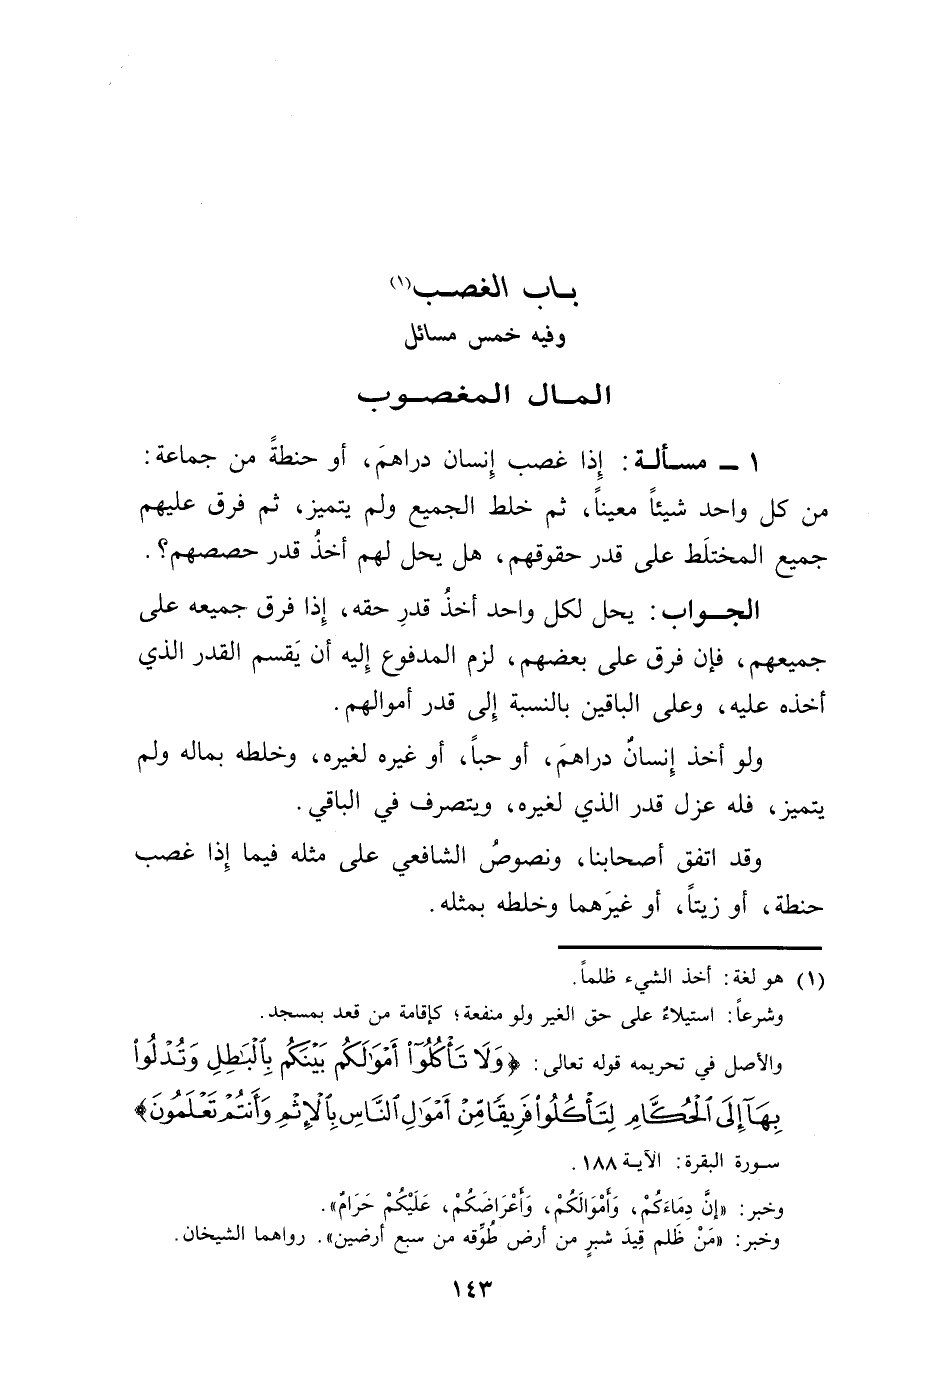 بـاب الغصـب(١)
وفيه خمس مسائل
المـال المغصـوب
١ ـ مسـألة: إِذا غصب إنسان دراهمَ، أو حنطةً من جماعة:
من كل واحد شيئاً معيناً، ثم خلط الجميع ولم يتميز، ثم فرق عليهم
جميع المختلَط على قدر حقوقهم، هل يحل لهم أخذُ قدر حصصهم؟.
الجـواب: يحل لكل واحد أخذُ قدرِ حقه، إِذا فرق جميعه على
جميعهم، فإن فرق على بعضهم، لزم المدفوع إليه أن يَقسم القدر الذي
أخذه عليه، وعلى الباقين بالنسبة إلى قدر أموالهم.
ولو أخذ إنسانٌ دراهمَ، أو حباً، أو غيره لغيره، وخلطه بماله ولم
يتميز، فله عزل قدر الذي لغيره، ويتصرف في الباقي.
وقد اتفق أصحابنا، ونصوصُ الشافعي على مثله فيما إِذا غصب
حنطة، أو زيتاً، أو غيرَهما وخلطه بمثله.
(١) هو لغة: أخذ الشيء ظلماً.
وشرعاً: استيلاءٌ على حق الغير ولو منفعة؛ كإقامة من قعد بمسجد.
والأصل في تحريمه قوله تعالى: ﴿وَلَا تَأْكُلُوٓا۟ أَمْوَٰلَكُم بَيْنَكُم بِٱلْبَٰطِلِ وَتُدْلُوا۟
بِهَآ إِلَى ٱلْحُكَّامِ لِتَأْكُلُوا۟ فَرِيقًا مِّنْ أَمْوَٰلِ ٱلنَّاسِ بِٱلْإِثْمِ وَأَنتُمْ تَعْلَمُونَ﴾
سـورة البقرة: الآيـة ١٨٨.
وخبر: «إنَّ دِمَاءَكُمْ، وَأَمْوَالَكُمْ، وَأَعْرَاضَكُمْ، عَلَيْكُمْ حَرَامٌ».
وخبر: «مَنْ ظَلم قِيدَ شبرٍ من أرض طُوِّقه من سبع أرضين». رواهما الشيخان.
١٤٣